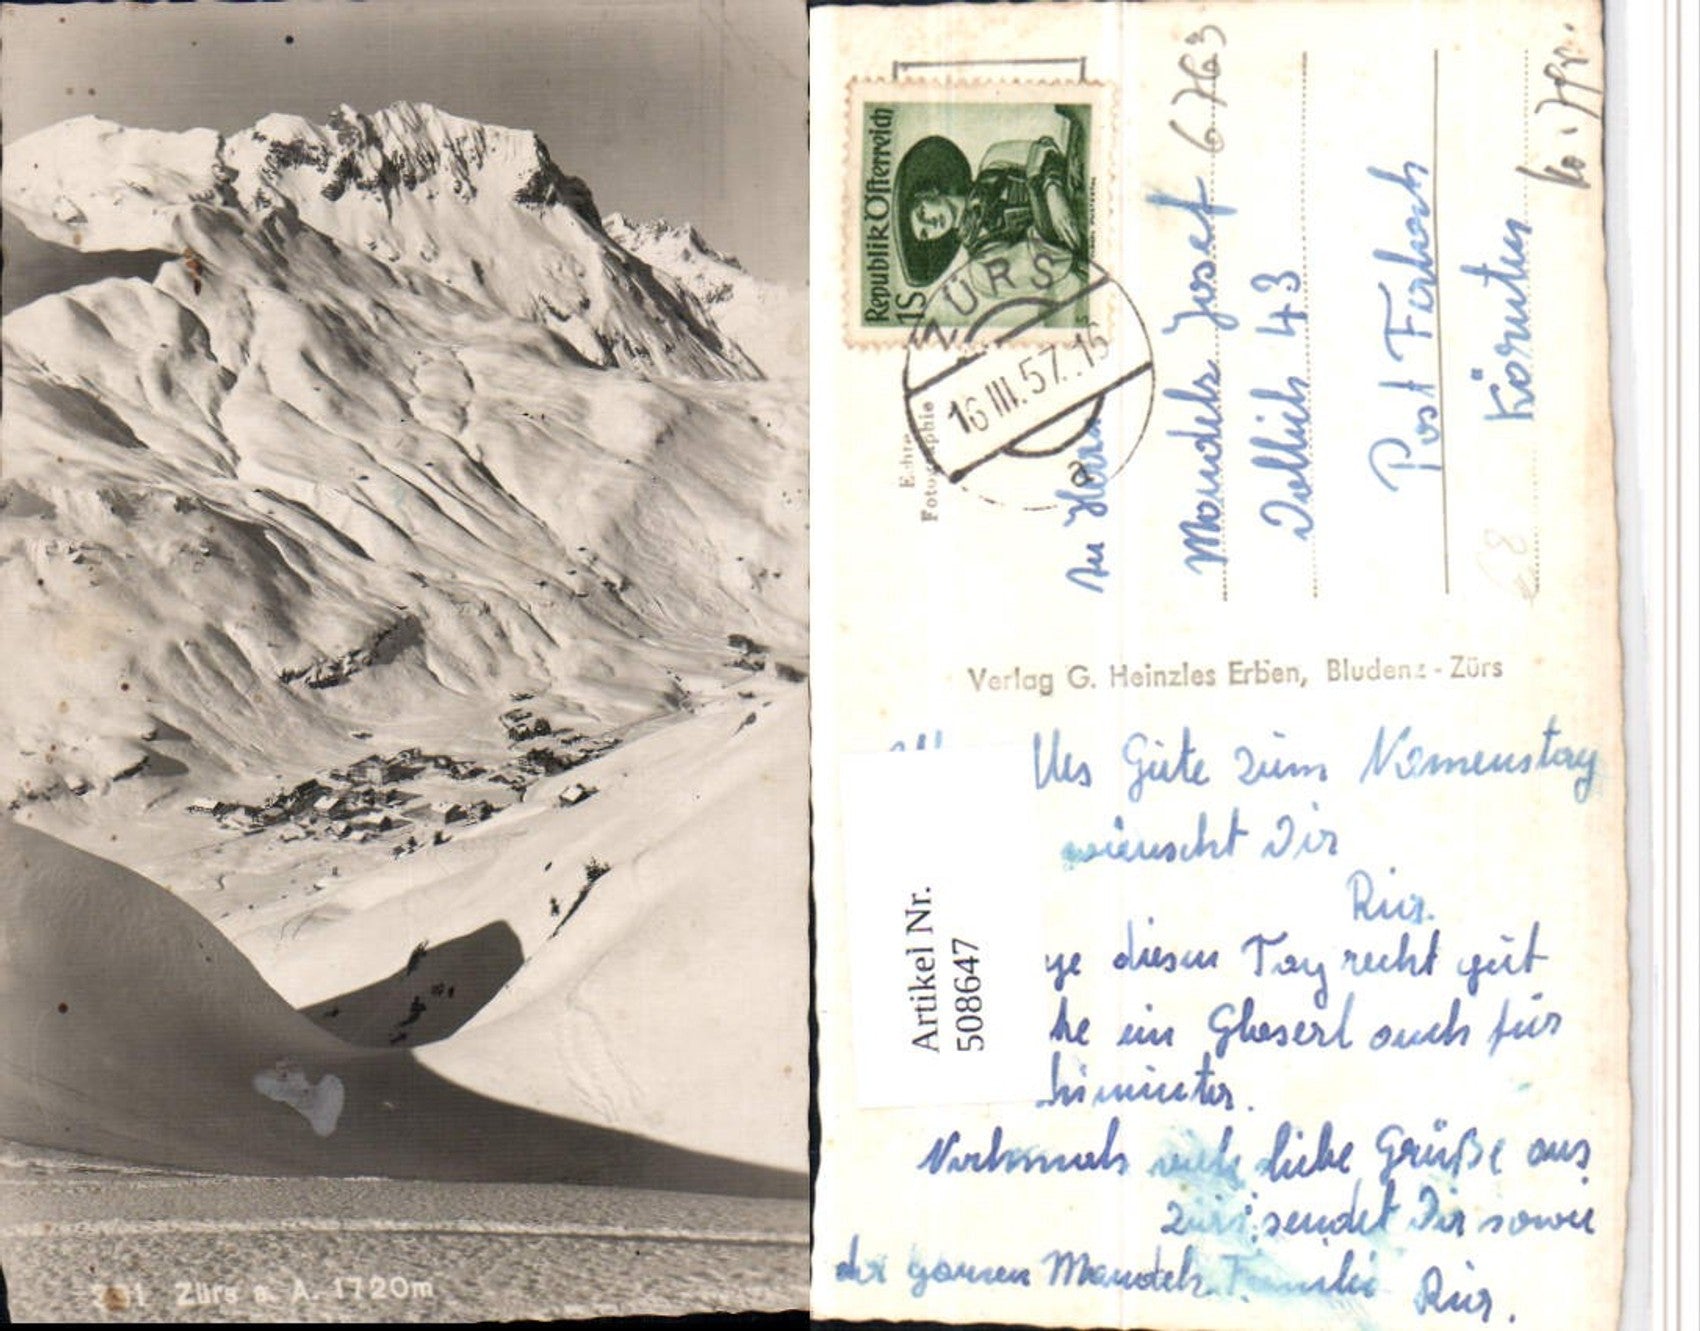 Zürs a. A. 1720m
Republik Österreich
1S
ZÜRS
16.III.57.16
a
Echte
Fotographie
Josef 6763
43
Post
Kärnten
Verlag G. Heinzles Erben, Bludenz - Zürs
lles Gute zum Namenstag
wünscht Dir
diesen Tag recht gut
ein Glaserl auch für
hinunter.
Nochmals viele liebe Grüße aus
Zürs sendet Dir sowie
der ganzen Familie
Artikel Nr.
508647